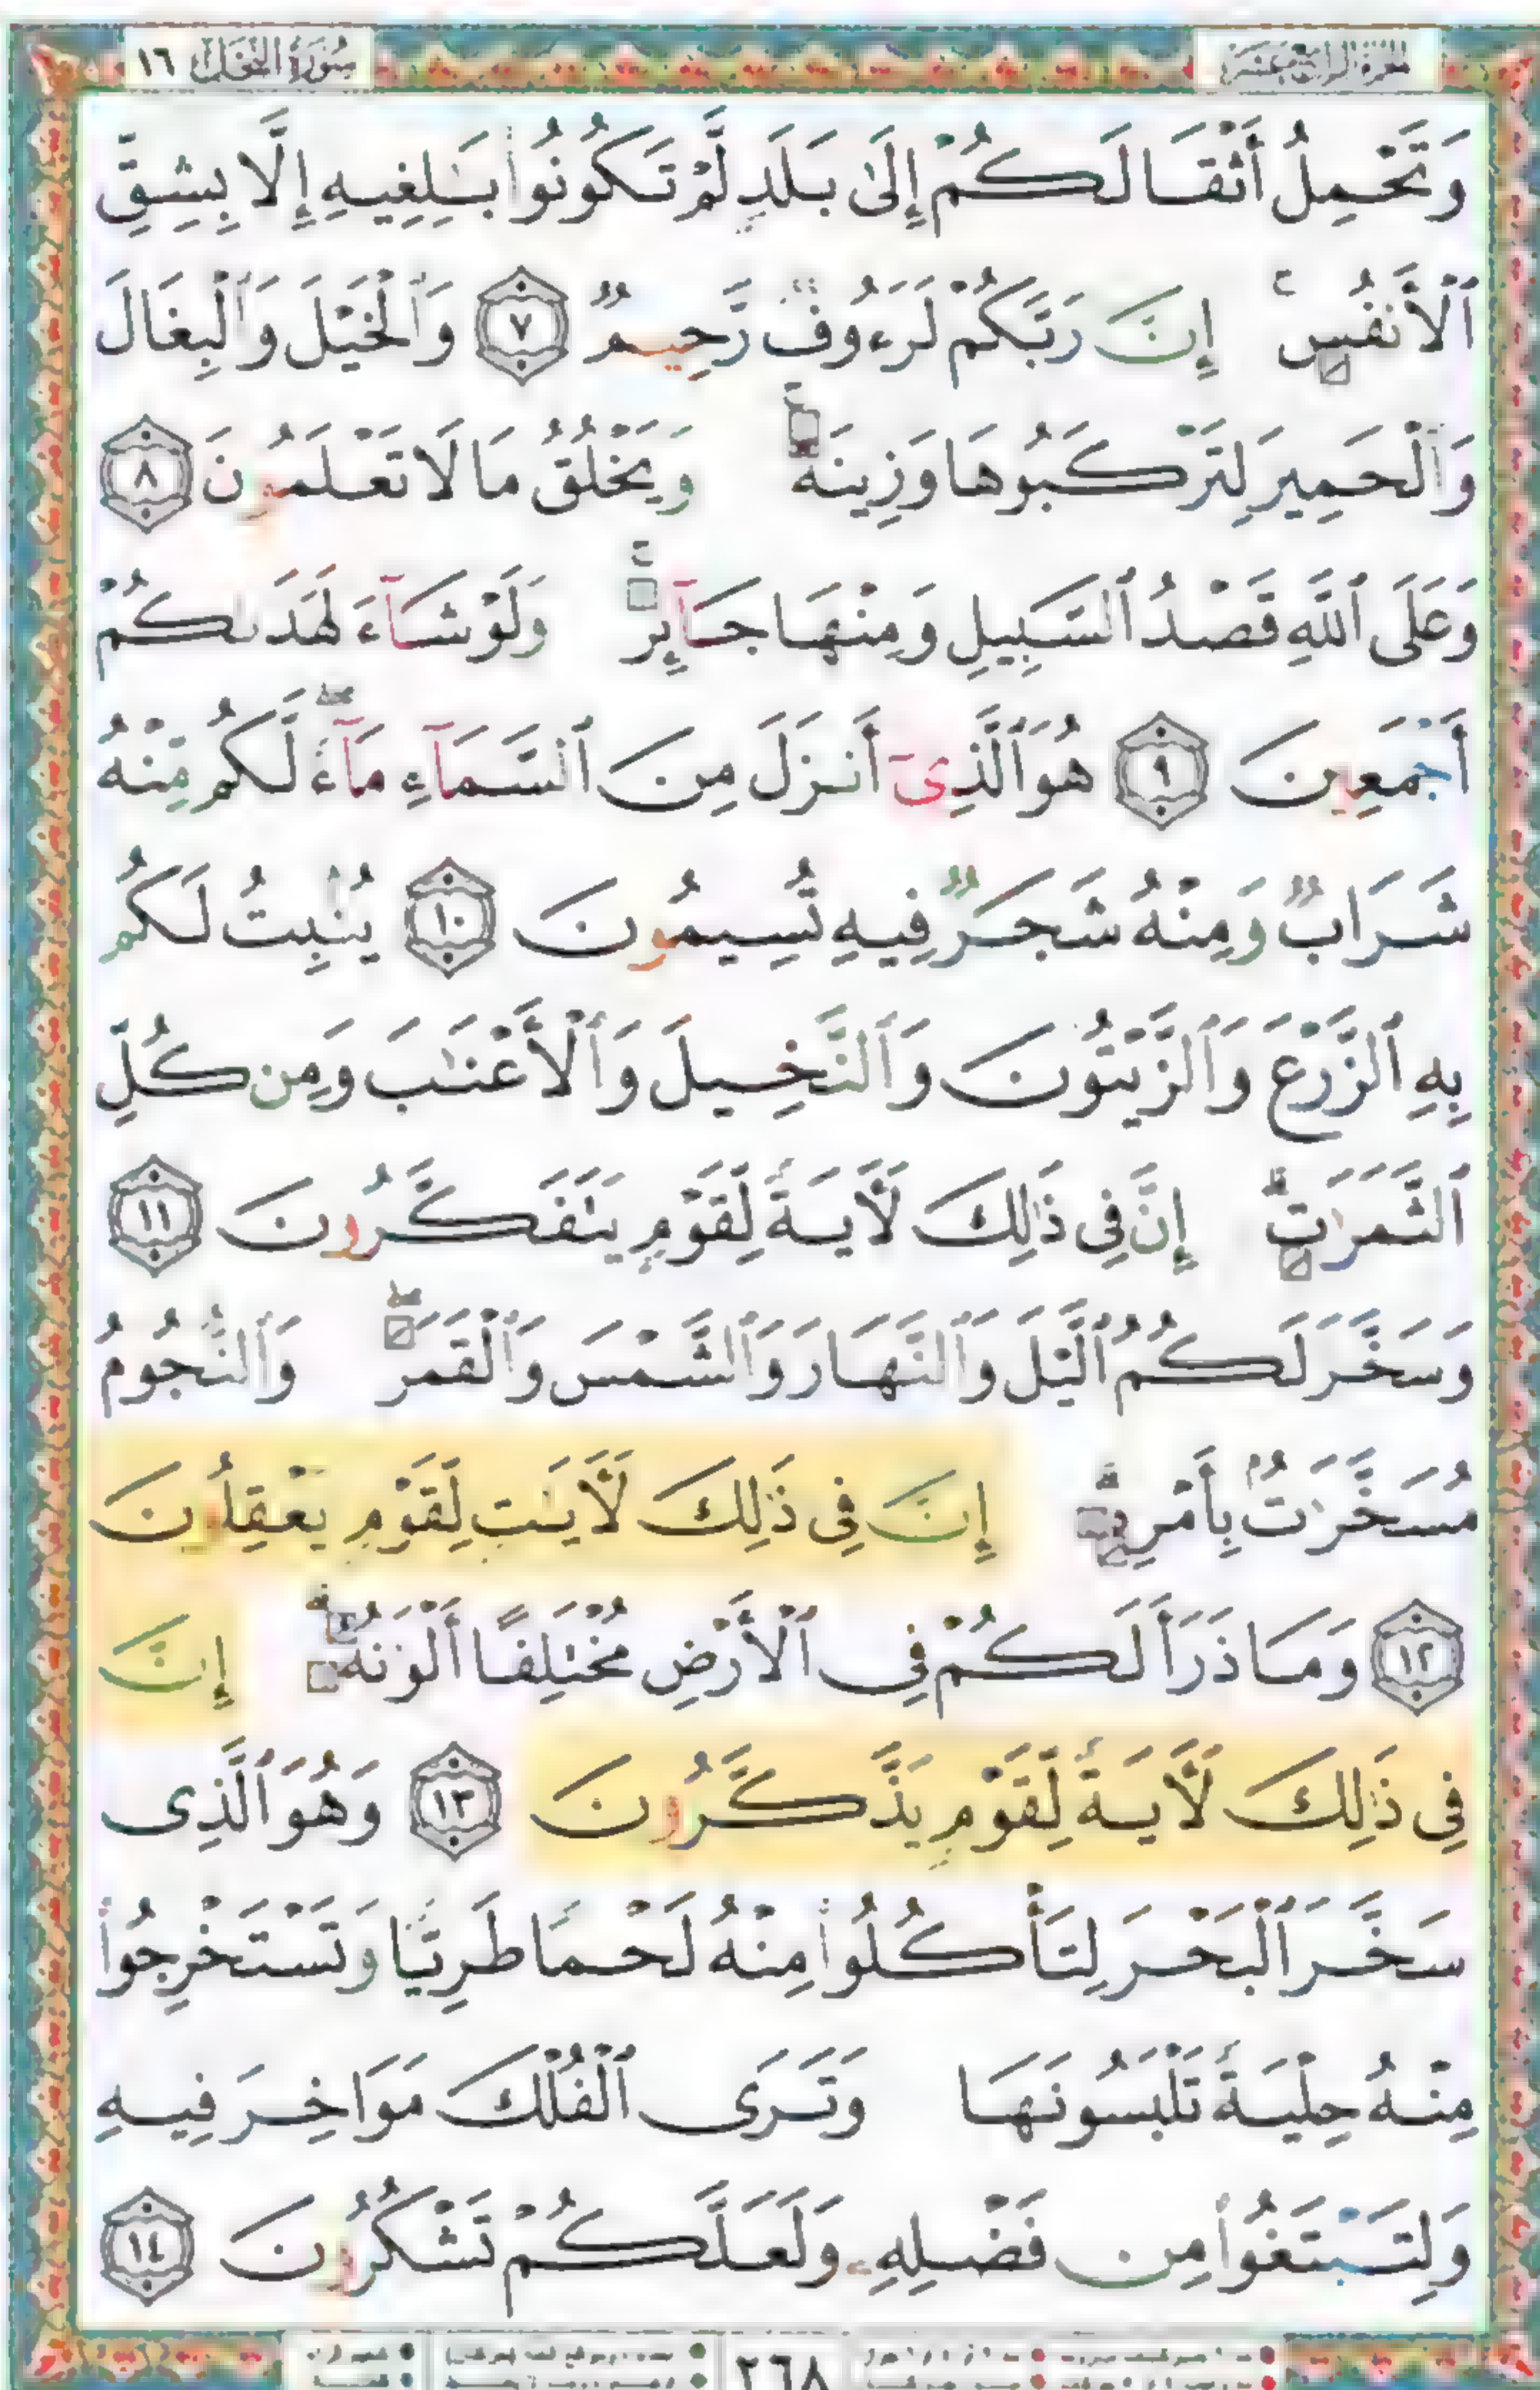 سُورَةُ النَّحْلِ ١٦
وَتَحْمِلُ أَثْقَالَكُمْ إِلَىٰ بَلَدٍ لَّمْ تَكُونُوا۟ بَـٰلِغِيهِ إِلَّا بِشِقِّ
ٱلْأَنفُسِ ۚ إِنَّ رَبَّكُمْ لَرَءُوفٌ رَّحِيمٌ ٧ وَٱلْخَيْلَ وَٱلْبِغَالَ
وَٱلْحَمِيرَ لِتَرْكَبُوهَا وَزِينَةً ۚ وَيَخْلُقُ مَا لَا تَعْلَمُونَ ٨
وَعَلَى ٱللَّهِ قَصْدُ ٱلسَّبِيلِ وَمِنْهَا جَآئِرٌ ۚ وَلَوْ شَآءَ لَهَدَىٰكُمْ
أَجْمَعِينَ ٩ هُوَ ٱلَّذِىٓ أَنزَلَ مِنَ ٱلسَّمَآءِ مَآءً ۖ لَّكُم مِّنْهُ
شَرَابٌ وَمِنْهُ شَجَرٌ فِيهِ تُسِيمُونَ ١٠ يُنۢبِتُ لَكُم
بِهِ ٱلزَّرْعَ وَٱلزَّيْتُونَ وَٱلنَّخِيلَ وَٱلْأَعْنَـٰبَ وَمِن كُلِّ
ٱلثَّمَرَٰتِ ۗ إِنَّ فِى ذَٰلِكَ لَـَٔايَةً لِّقَوْمٍ يَتَفَكَّرُونَ ١١
وَسَخَّرَ لَكُمُ ٱلَّيْلَ وَٱلنَّهَارَ وَٱلشَّمْسَ وَٱلْقَمَرَ ۖ وَٱلنُّجُومُ
مُسَخَّرَٰتٌۢ بِأَمْرِهِۦٓ ۗ إِنَّ فِى ذَٰلِكَ لَـَٔايَـٰتٍ لِّقَوْمٍ يَعْقِلُونَ
١٢ وَمَا ذَرَأَ لَكُمْ فِى ٱلْأَرْضِ مُخْتَلِفًا أَلْوَٰنُهُۥٓ ۗ إِنَّ
فِى ذَٰلِكَ لَـَٔايَةً لِّقَوْمٍ يَذَّكَّرُونَ ١٣ وَهُوَ ٱلَّذِى
سَخَّرَ ٱلْبَحْرَ لِتَأْكُلُوا۟ مِنْهُ لَحْمًا طَرِيًّا وَتَسْتَخْرِجُوا۟
مِنْهُ حِلْيَةً تَلْبَسُونَهَا وَتَرَى ٱلْفُلْكَ مَوَاخِرَ فِيهِ
وَلِتَبْتَغُوا۟ مِن فَضْلِهِۦ وَلَعَلَّكُمْ تَشْكُرُونَ ١٤
٢٦٨